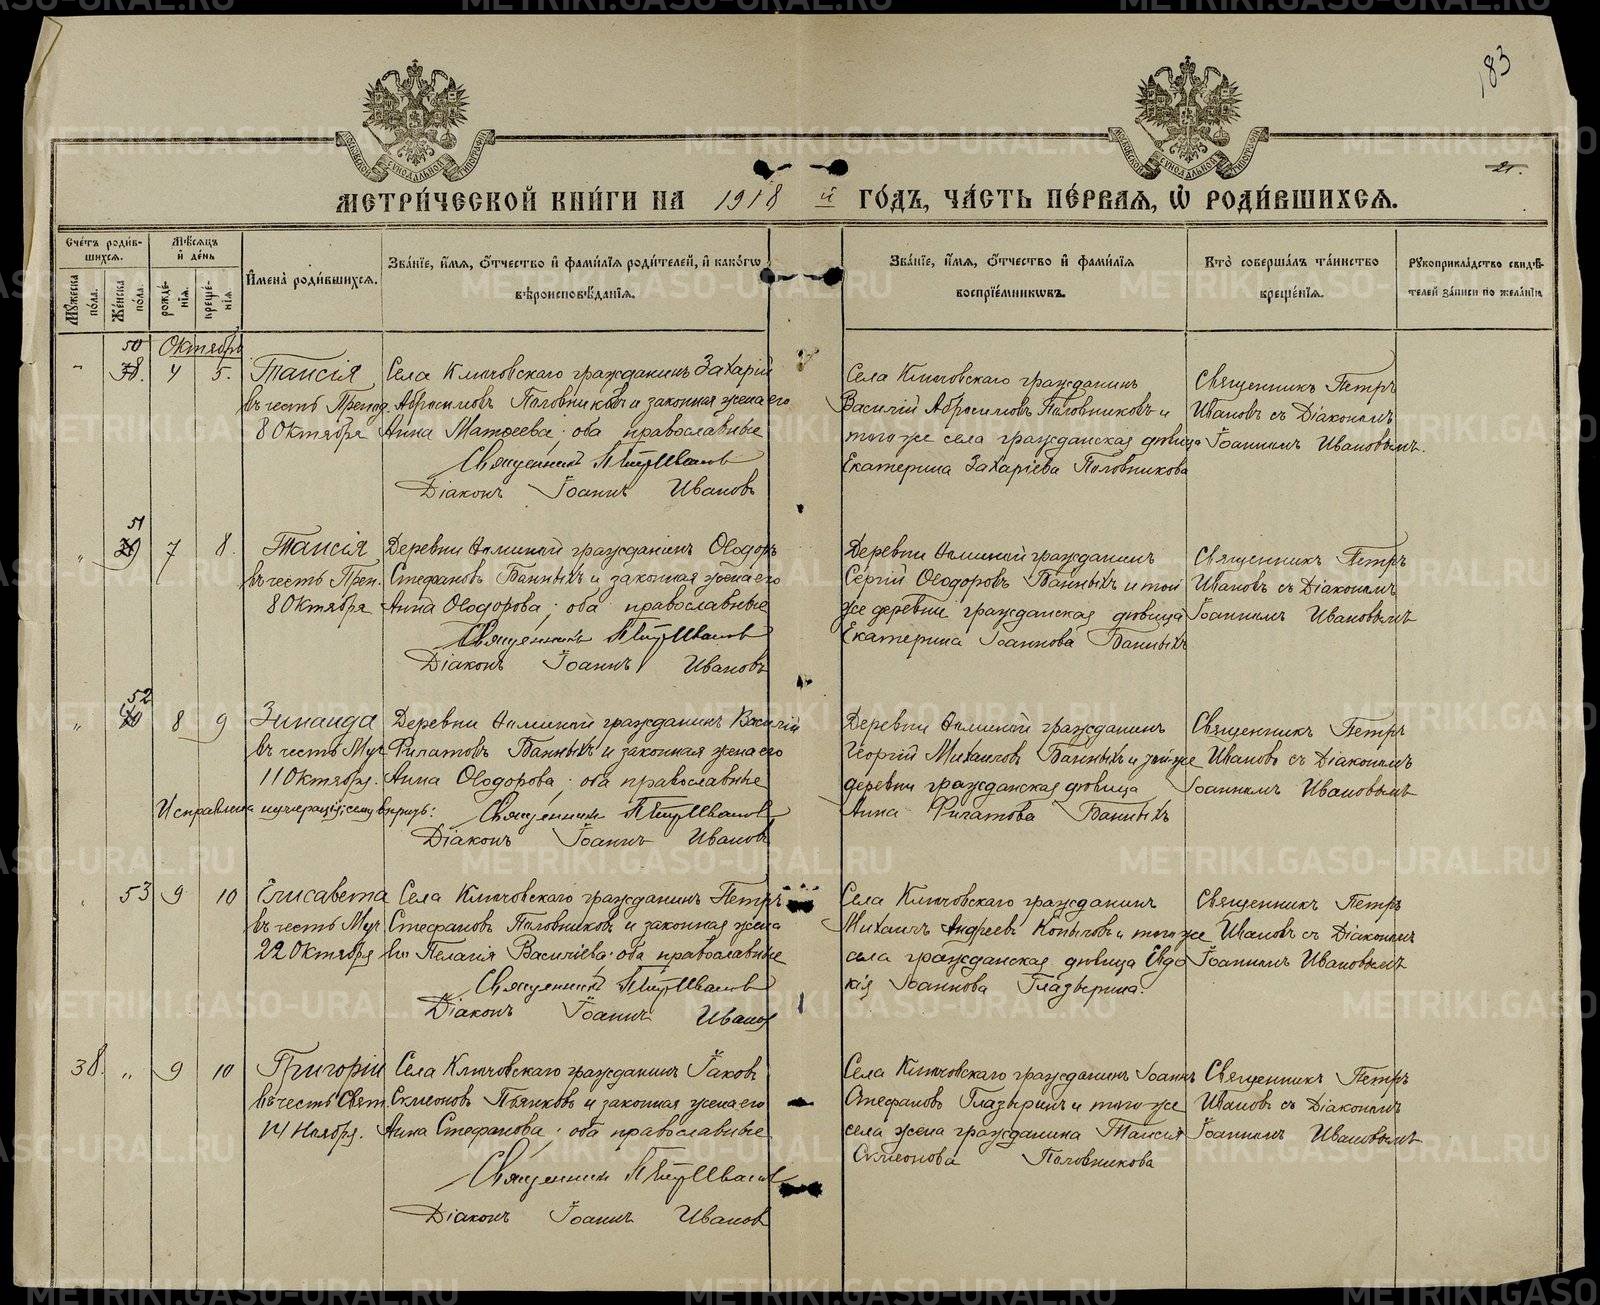 183
21.
МЕТРИ́ЧЕСКОЙ КНИ́ГИ НА 1918 й ГО́ДЪ, ЧА́СТЬ ПЕ́РВАЯ, Ѽ РОДИ́ВШИХСЯ.
Сче́тъ роди́в-
шихся.
Мѣ́сяцъ
и҆ де́нь
Мꙋ́жеска по́ла.
Же́нска по́ла.
рожде́-
нїѧ.
креще́-
нїѧ
И҆мена̀ роди́вшихсѧ.
Зва́нїе, и҆́мѧ, ѻ҆́тчество и҆ фами́лїѧ роди́телей, и҆ како́гѡ
вѣроисповѣ́данїѧ.
Зва́нїе, и҆́мѧ, ѻ҆́тчество и҆ фами́лїѧ
воспрїе́мникѡвъ.
Кто̀ соверша́лъ та́инство
креще́нїѧ.
Рꙋкоприкла́дство свидѣ́-
телей за́писи по жела́нїю
Октябрь
50
38. 4 5. Таисія
въ честь Препод.
8 Октября
Села Ключовскаго гражданинъ Захарій
Абросимовъ Половниковъ и законная жена его
Анна Матѳеева; оба православные
Священникъ Петръ Ивановъ
Діаконъ Іоаннъ Ивановъ
Села Ключовскаго гражданинъ
Василій Абросимовъ Половниковъ и
того же села гражданская дѣвица
Екатерина Захаріева Половникова
Священникъ Петръ
Ивановъ съ Діакономъ
Іоанномъ Ивановымъ.
51
39 7 8. Таисія
въ честь Преп.
8 Октября
Деревни гражданинъ Ѳеодоръ
Стефановъ Банныхъ и законная жена его
Анна Ѳеодорова; оба православные
Священникъ Петръ Ивановъ
Діаконъ Іоаннъ Ивановъ
Деревни гражданинъ
Сергій Ѳеодоровъ Банныхъ и той
же деревни гражданская дѣвица
Екатерина Іоаннова Банныхъ
Священникъ Петръ
Ивановъ съ Діакономъ
Іоанномъ Ивановымъ
52
40 8 9 Зинаида
въ честь Муч.
11 Октября.
Деревни гражданинъ Василій
Филатовъ Банныхъ и законная жена его
Анна Ѳеодорова; оба православные
Исправлена нумерація; сему вѣрить:
Священникъ Петръ Ивановъ
Діаконъ Іоаннъ Ивановъ
Деревни гражданинъ
Георгій Михаиловъ Банныхъ и той же
деревни гражданская дѣвица
Анна Филатова Банныхъ
Священникъ Петръ
Ивановъ съ Діакономъ
Іоанномъ Ивановымъ
53 9 10 Елисавета
въ честь Муч.
22 Октября
Села Ключовскаго гражданинъ Петръ
Стефановъ Половниковъ и законная жена
его Пелагія Василіева; оба православные
Священникъ Петръ Ивановъ
Діаконъ Іоаннъ Ивановъ
Села Ключовскаго гражданинъ
Михаилъ Андреевъ Копыловъ и того же
села гражданская дѣвица Евдо
кія Іоаннова Глазырина.
Священникъ Петръ
Ивановъ съ Діакономъ
Іоанномъ Ивановымъ
38. „ 9 10 Григорій
въ честь Свят.
14 Ноября.
Села Ключовскаго гражданинъ Іаковъ
Симеоновъ Пьянковъ и законная жена его
Анна Стефанова; оба православные
Священникъ Петръ Ивановъ
Діаконъ Іоаннъ Ивановъ
Села Ключовскаго гражданинъ Іоаннъ
Стефановъ Глазыринъ и того же
села жена гражданина Таисія
Симеонова Половникова
Священникъ Петръ
Ивановъ съ Діакономъ
Іоанномъ Ивановымъ
METRIKI.GASO-URAL.RU